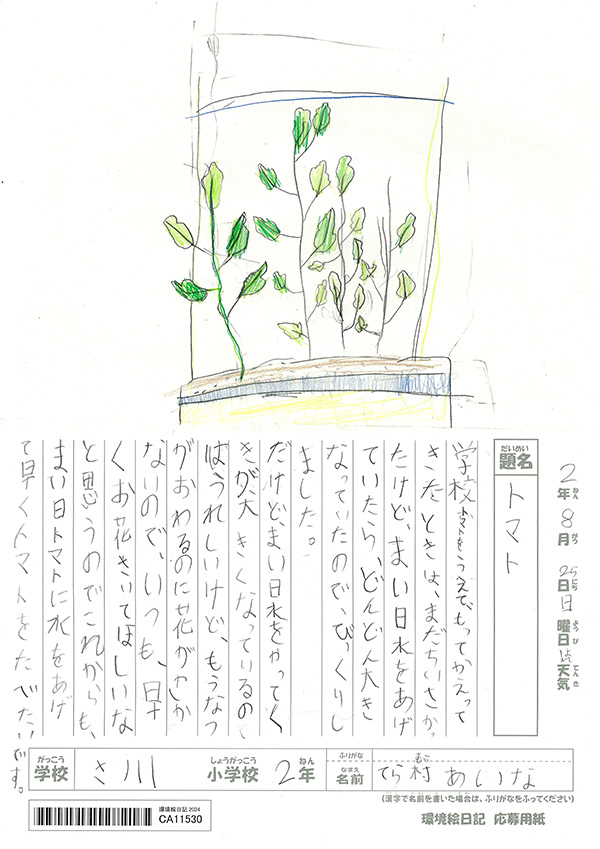 2年8月25日日曜日はれ天気
ねん がつ にち ようび てんき
だいめい
題名
トマト
学校トマトをうえて、もってかえって
きたときは、まだちいさかっ
たけど、まい日水をあげ
ていたら、どんどん大き
なっていたので、びっくりし
ました。
だけど、まい日水をやってく
きが、大きくなっているの
はうれしいけど、もうなつ
がおわるのに花がさか
ないので、いつも、早
くお花さいてほしいな
と思うのでこれからも、
まい日トマトに水をあげ
て早くトマトをたべたいです。
がっこう しょうがっこう ねん ふりがな むら
学校 さ川 小学校 2年 なまえ 名前 てら村 あいな
(漢字で名前を書いた場合は、ふりがなをふってください)
環境絵日記 2024
CA11530
環境絵日記 応募用紙